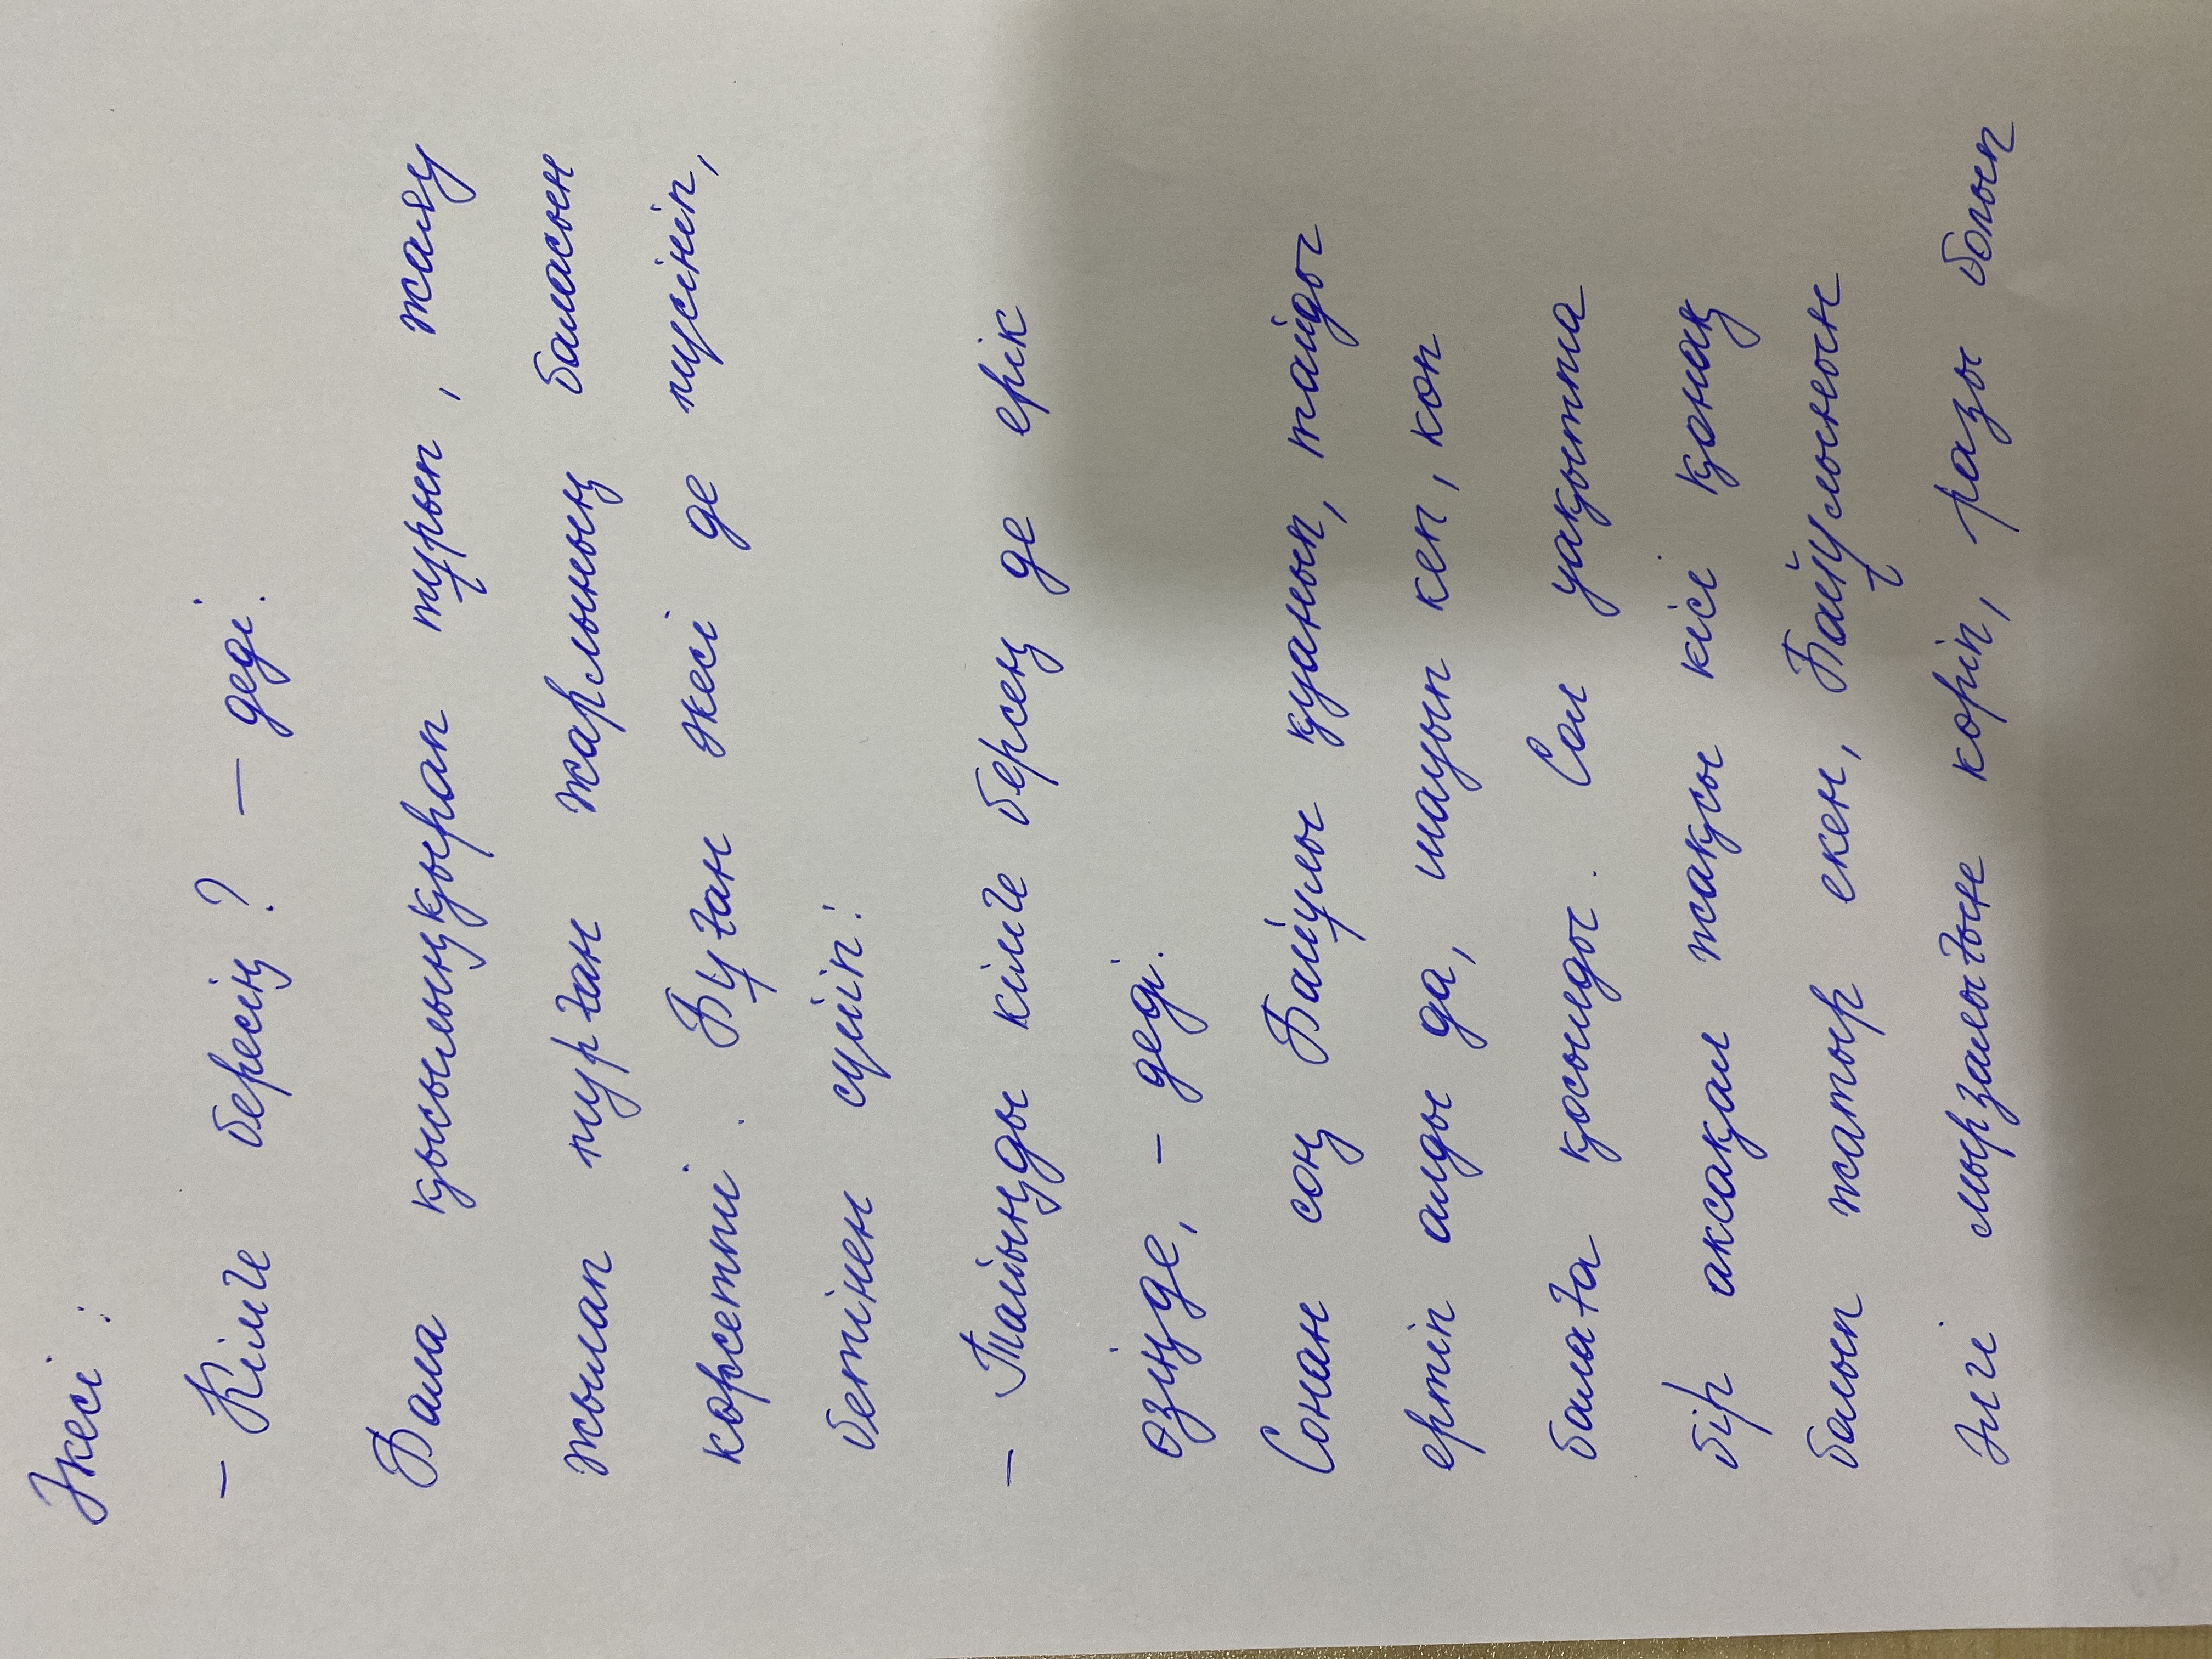 Әкесі :
– Кімге бересің ? – деді.
Бала қысылыңқырап тұрып , жаяу
жылап тұрған жарлының баласын
көрсетті . Бұған әкесі де түсініп,
бетінен сүйіп:
– Тайыңды кімге берсең де ерік
өзіңде, – деді.
Сонан соң Байұлы қуанып, тайды
ертіп алды да, шауып кеп, көп
балаға қосылды . Сол уақытта
бір ақсақал жақсы кісі қонақ
болып жатыр екен, Байұлының
әлгі мырзалығын көріп, разы болып